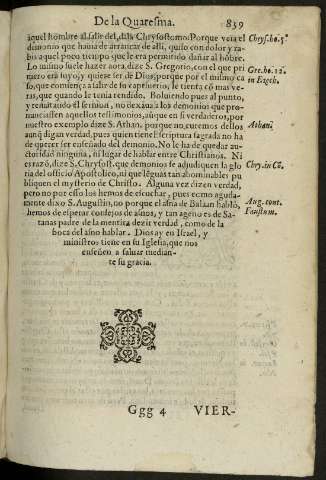 De la Quaresma. 859
aquel hombre al salir del, dize Chrysostomo: Porque veia el
demonio que hauia de arrancar de alli, quiso con dolor y ra-
bia aquel poco tiempo que le era permitido dañar al hõbre.
Lo mismo suele hazer nota, dize S. Gregorio, con el que pri-
mero era suyo, y quiere ser de Dios, porque por el mismo ca
so, que comiença a salir de su captiuerio, le tienta cõ mas ve-
ras, que quando le tenia rendido. Boluiendo pues al punto,
y rematando el sermon, no dexaua a los demonios que pro-
nunciassen aquellos testimonios, aũque en si verdaderos, por
nuestro exemplo dize S. Athan. porque no curemos dellos
aunq̃ digan verdad, pues quien tiene Escritura sagrada no ha
de querer ser enseñado del demonio. No le ha de quedar au-
ctoridad ninguna, ni lugar de hablar entre Christianos. Ni
es razõ, dize S. Chrysost. que demonios se adjudiquen la glo
ria del officio Apostolico, ni que lẽguas tan abominables pu
bliquen el mysterio de Christo. Alguna vez dizen verdad,
pero no por esso los hemos de escuchar, pues como aguda-
mente dixo S. Augustin, no porque el asna de Balaan habló,
hemos de esperar consejos de asnos, y tan ageno es de Sa-
tanas padre de la mentira dezir verdad, como de la
boca del asno hablar. Dios ay en Israel, y
ministros tiene en su Iglesia, que nos
enseñen a saluar median-
te su gracia.
Chrys. ho. 5.
Gre. ho. 12.
in Ezech.
Athan.
Chry. in Cõ.
Aug. cont.
Faustum.
Ggg 4 VIER-